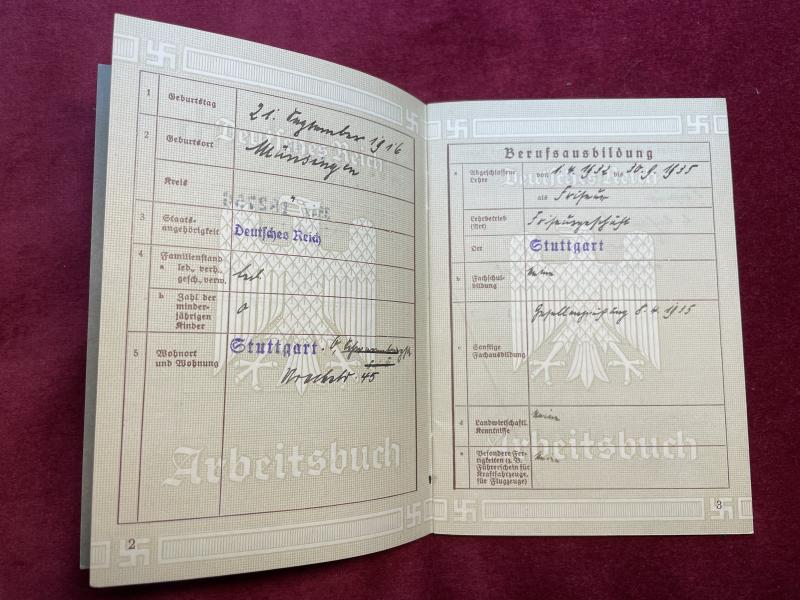 1 Geburtstag 21. September 1916
2 Geburtsort Münsingen
Kreis "
3 Staats-
angehörigkeit Deutsches Reich
4 Familienstand
a led., verh.,
gesch., verw. led
b Zahl der
minder-
jährigen
Kinder 0
5 Wohnort
und Wohnung Stuttgart.
45
Deutsches Reich
Arbeitsbuch
2
Berufsausbildung
a Abgeschlossene
Lehre von 1.4.1932 bis 30.9.1935
als Friseur
Lehrbetrieb
(Art) Friseurgeschäft
Ort Stuttgart
b Fachschul-
bildung keine
Gesellenprüfung 8.4.1935
c Sonstige
Fachausbildung
d Landwirtschaftl.
Kenntnisse keine
e Besondere Fer-
tigkeiten (z. B.
Führerschein für
Kraftfahrzeuge,
für Flugzeuge) keine
Deutsches Reich
Arbeitsbuch
3